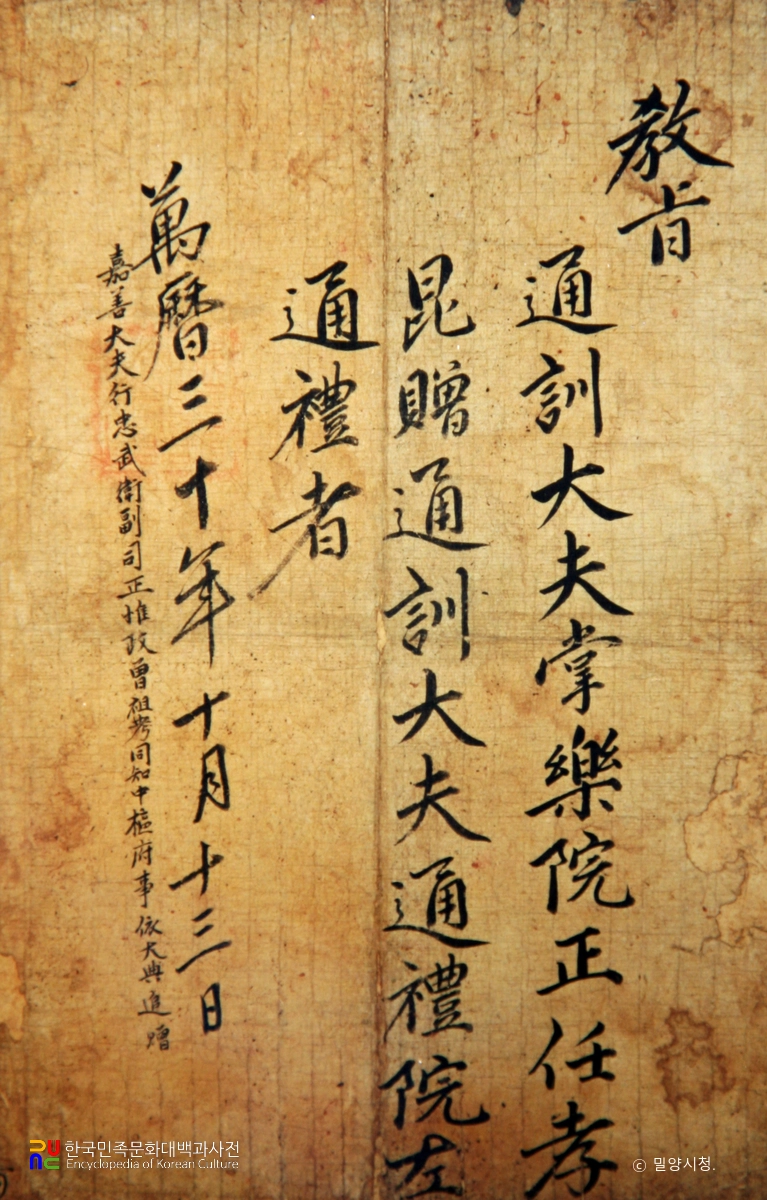 教旨
通訓大夫掌樂院正任孝
昆贈通訓大夫通禮院左
通禮者
萬曆三十年十月十三日
嘉善大夫行忠武衛副司正惟政曾祖考同知中樞府事依大典追贈
한국민족문화대백과사전
Encyclopedia of Korean Culture
© 밀양시청.